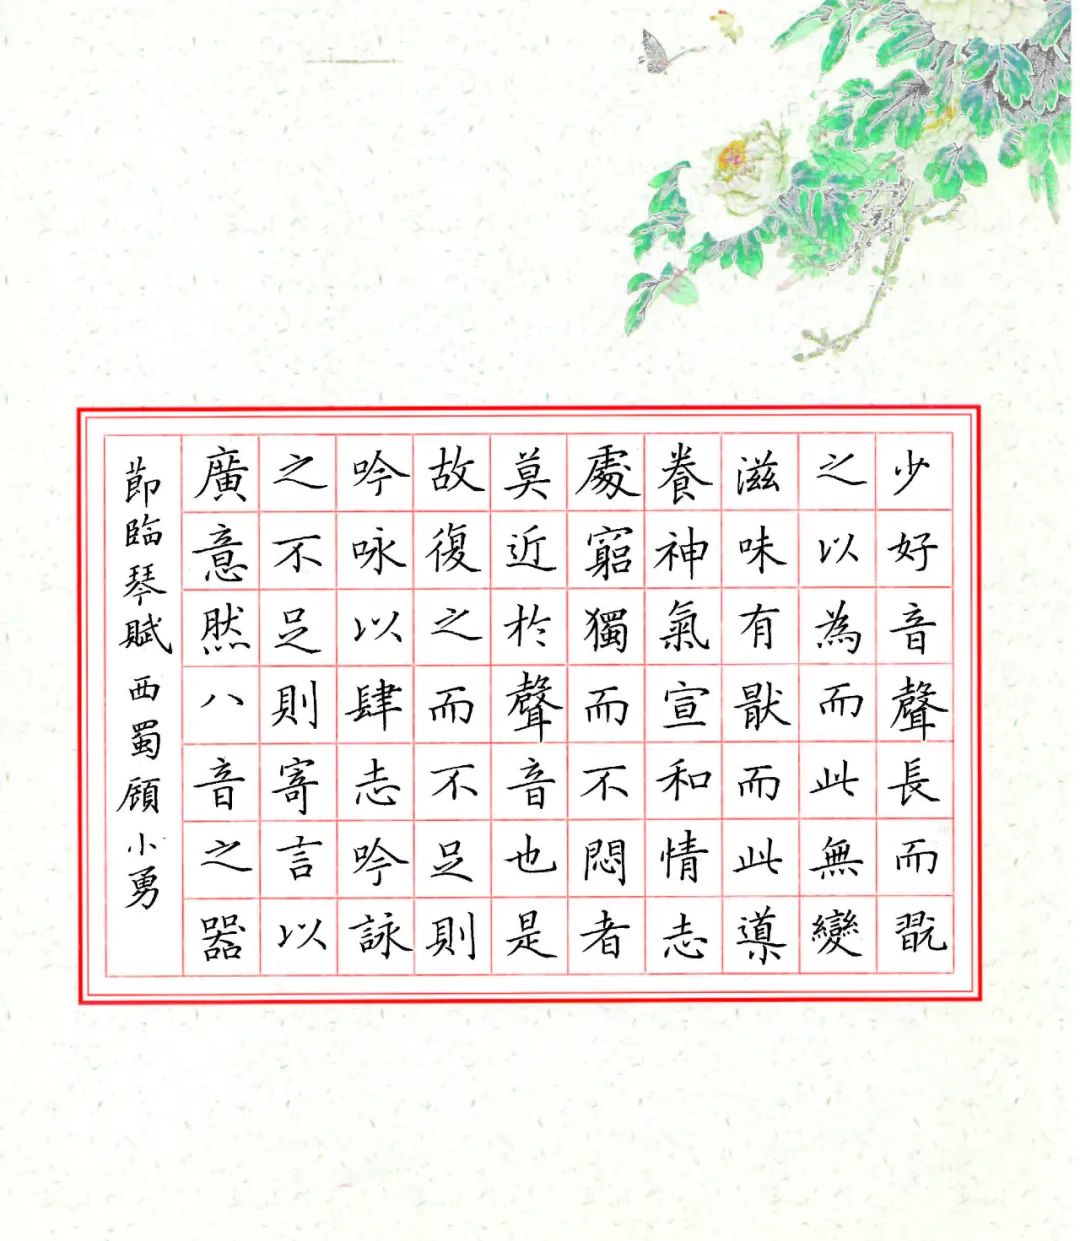 少好音聲長而翫
之以為而此無變
滋味有猒而此導
養神氣宣和情志
處窮獨而不悶者
莫近於聲音也是
故復之而不足則
吟咏以肆志吟詠
之不足則寄言以
廣意然八音之器
節臨琴賦 西蜀顧小勇